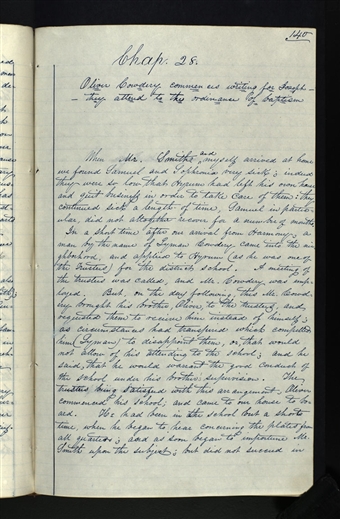 140
Chap. 28.
Oliver Cowdery commences writing for Joseph
— they attend to the ordinance of baptism
When Mr. Smith and myself arrived at home
we found Samuel and Sophronia very sick; indeed
they were so low that Hyrum had left his own house
and quit business in order to take care of them. They
continued sick a length of time, Samuel in partic-
ular, did not altogether recover for a number of months.
In a short time after our arrival from Harmony, a
man by the name of Lyman Cowdery came into the nei-
ghborhood, and applied to Hyrum (as he was one of
the trustees) for the district school. A meeting of
the trustees was called, and Mr. Cowdery was emp-
loyed. But, on the day following, this Mr. Cowd-
ery brought his brother Oliver, to the trustees, and
requested them to receive him instead of himself;
as circumstances had transpired which compelled
him (Lyman) to disappoint them, or, that would
not allow of his attending to the school; and he
said, that he would warrant the good conduct of
the school under his brother's supervision. The
trustees being satisfied with this arrangement, Oliver
commenced his school, and came to our house to bo-
ard. He had been in the school but a short
time, when he began to hear concerning the plates from
all quarters; and as soon began to importune Mr.
Smith upon the subject; but did not succeed in